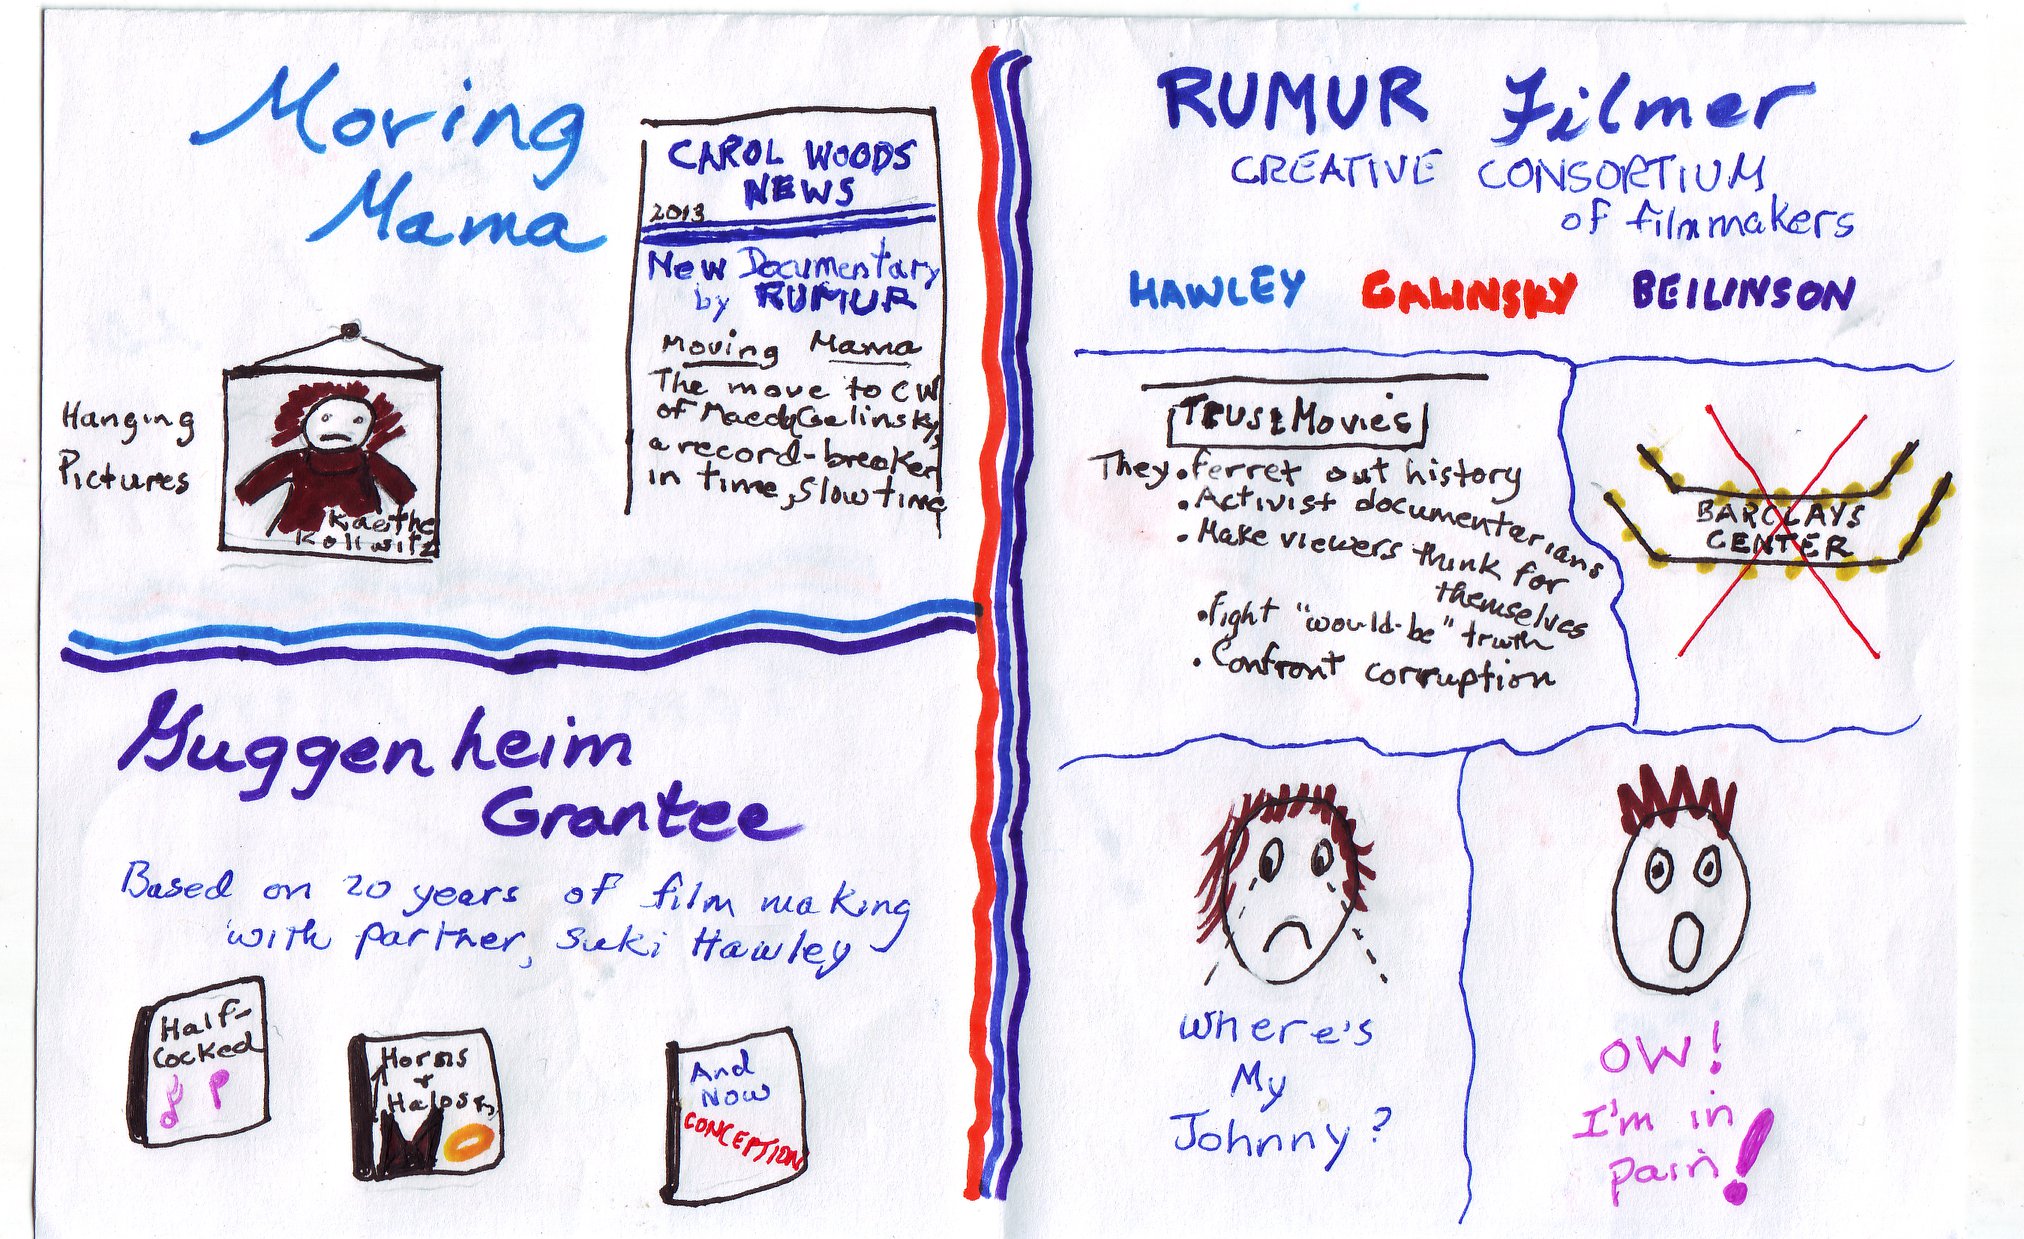 Moving
Mama
CAROL WOODS
NEWS
2013
New Documentary
by RUMUR
Moving Mama
The move to CW
of Maedy Galinsky,
a record-breaker
in time, slow time
Hanging
Pictures
Kaethe
Kollwitz
Guggenheim
Grantee
Based on 20 years of film making
with partner, Suki Hawley
Half-
Cocked
Horns
+
Halos
And
Now
CONCEPTION
RUMUR Filmer
CREATIVE CONSORTIUM
of filmmakers
HAWLEY GALINSKY BEILINSON
TRUST Movies
They • ferret out history
• Activist documentarians
• Make viewers think for
themselves
• Fight "would-be" truth
• Confront corruption
BARCLAYS
CENTER
Where's
My
Johnny?
OW!
I'm in
pain!